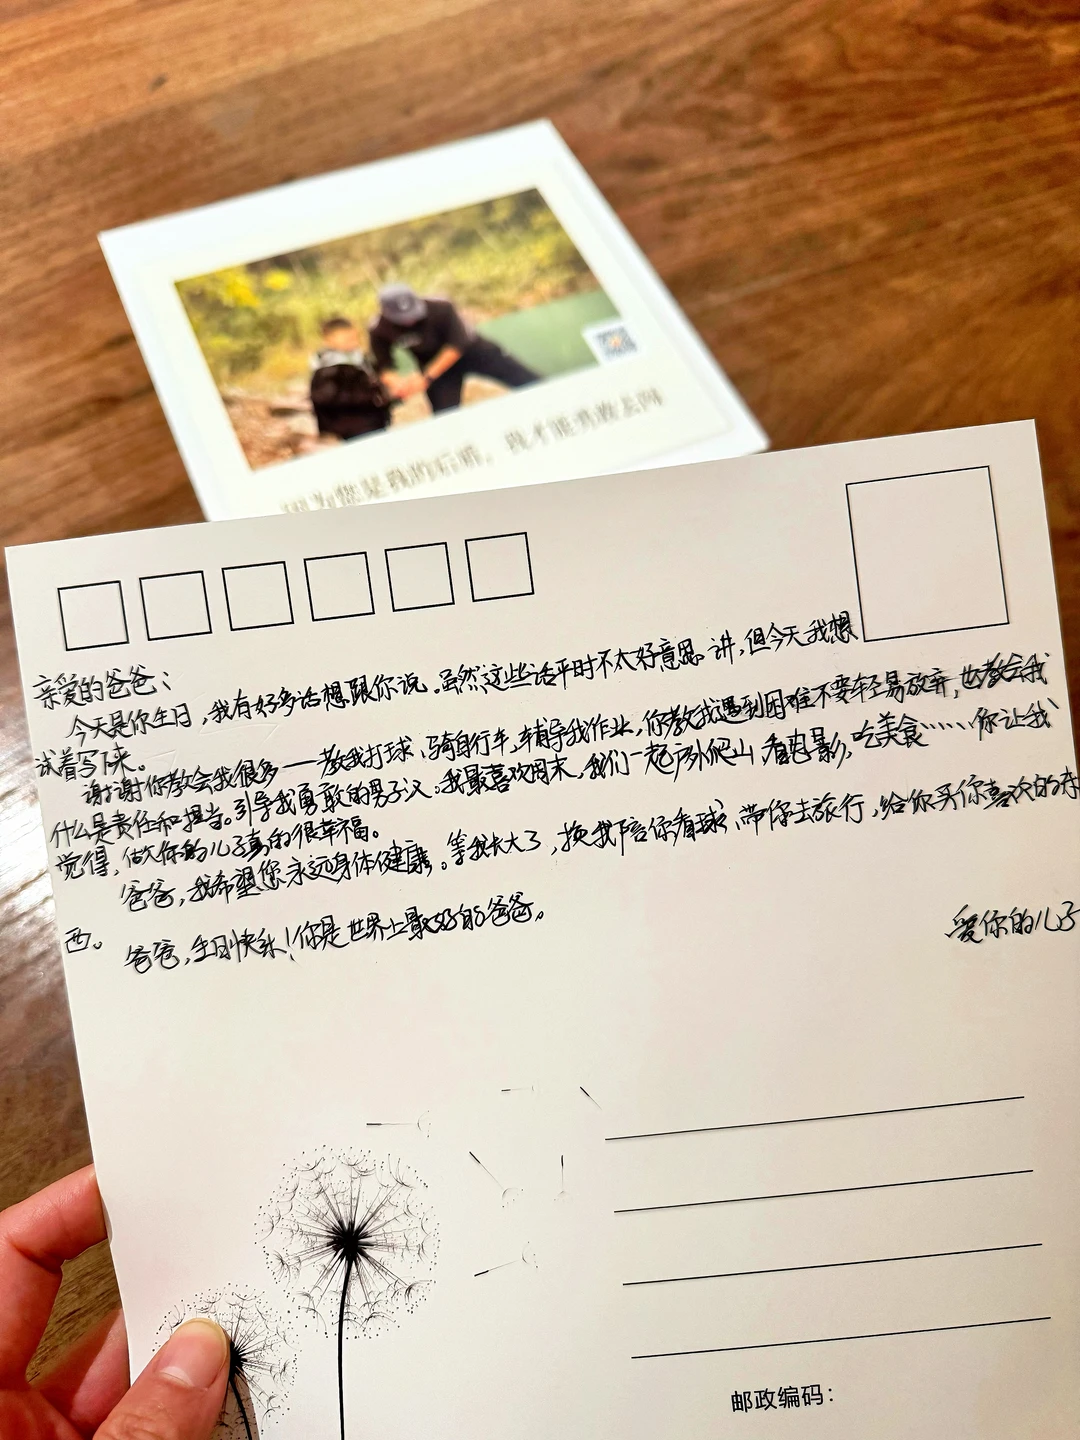 因为您是我的后盾，我才能勇敢去闯
亲爱的爸爸：
今天是你生日，我有好多话想跟你说，虽然这些话平时不太好意思讲，但今天我想
试着写下来。
谢谢你教会我很多——教我打球、骑自行车，辅导我作业，你教我遇到困难不要轻易放弃，也教会我
什么是责任和担当。引导我勇敢的男子汉。我最喜欢周末，我们一起户外爬山，看电影，吃美食……你让我
觉得，做你的儿子真的很幸福。
爸爸，我希望您永远身体健康。等我长大了，换我陪你看球、带你去旅行，给你买你喜欢的东
西。
爸爸，生日快乐！你是世界上最好的爸爸。
爱你的儿子
邮政编码：